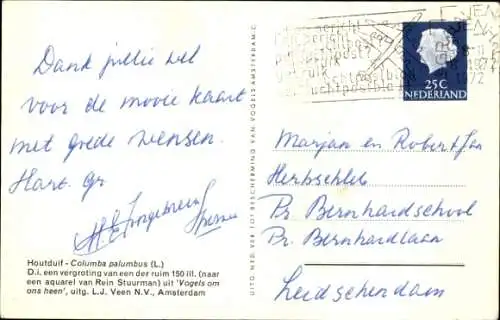 Dank jullie wel
voor de mooie kaart
met goede wensen.
Hart. gr.
Houtduif - Columba palumbus (L.)
D.i. een vergroting van een der ruim 150 ill. (naar
een aquarel van Rein Stuurman) uit 'Vogels om
ons heen', uitg. L.J. Veen N.V., Amsterdam
UITG. NED. VER. TOT BESCHERMING VAN VOGELS AMSTERDAM-C.
luchtpostblad
1972
25C
NEDERLAND
Marjan en Robert Jan
Herbschleb
Pr. Bernhardschool
Pr. Bernhardlaan
Leidschendam